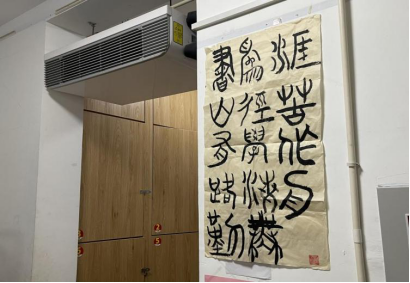 書山有路勤
爲徑學海無
涯苦作舟